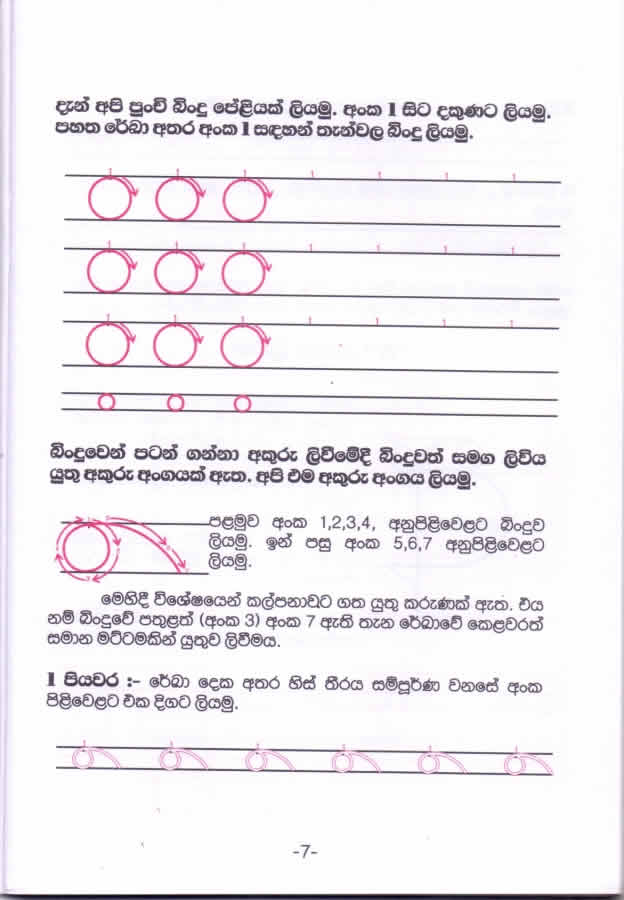 දැන් අපි පුංචි බිංදු පේළියක් ලියමු. අංක 1 සිට දකුණට ලියමු.
පහත රේඛා අතර අංක 1 සඳහන් තැන්වල බිංදු ලියමු.
1 1 1 1 1 1 1
1 1 1 1 1 1 1
1 1 1 1 1 1 1
බිංදුවෙන් පටන් ගන්නා අකුරු ලිවීමේදී බිංදුවත් සමග ලිවිය
යුතු අකුරු අංගයක් ඇත. අපි එම අකුරු අංගය ලියමු.
පළමුව අංක 1,2,3,4, අනුපිළිවෙළට බිංදුව
ලියමු. ඉන් පසු අංක 5,6,7 අනුපිළිවෙළට
ලියමු.
මෙහිදී විශේෂයෙන් කල්පනාවට ගත යුතු කරුණක් ඇත. එය
නම් බිංදුවේ පතුළත් (අංක 3) අංක 7 ඇති තැන රේඛාවේ කෙළවරත්
සමාන මට්ටමකින් යුතුව ලිවීමය.
1 පියවර :- රේඛා දෙක අතර හිස් තීරය සම්පූර්ණ වනසේ අංක
පිළිවෙළට එක දිගට ලියමු.
-7-